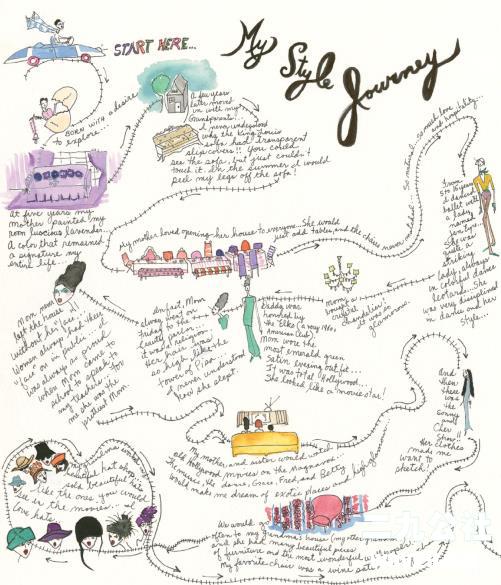 START HERE...
My Style Journey
BORN WITH a desire
to explore...
A few years
later moved
in with my
Grandparents...
I never understood
why the King Louis
sofas had transparent
slipcovers!! You could
see the sofa, but just couldn't
touch it. In the summer I would
peel my legs off the sofa!
At five years my
mother painted my
room luscious lavender.
A color that remained
a signature my
entire life...
My mother loved opening her house to everyone. She would
just add tables, and the chairs never matched...
So much love
and hospitality...
From
5 to 16 years
I danced
ballet with
a lady
named
She was
quite a
striking
lady, always
in colorful dance
leotards. She
was very disciplined
in dance and her
style...
Mom
bought a
crystal
chandelier!
It was so
glamorous.
Daddy was
honored by
the Elks (a very 1960s
American Club)
Mom wore the
most emerald green
Satin evening outfit...
It was total Hollywood...
She looked like a movie star!
In fact, Mom
always went on
Friday to the
beauty parlor...
it was a religion.
Her hair was
as high like the
tower of Pisa.
I never understood
how she slept.
Mom never
left the house
without her
Women always had their
"face" on in public.
I was always so proud
when Mom came to
school to speak to
my teachers, for
me she was the
prettiest Mom.
And then
there
was the
Sonny
and
Cher
Show!!
Her clothes
made me
want to
sketch!
My mother and sister would watch
old Hollywood movies on the Magnavox...
the divine, Grace, Fred, and Betty
would make me dream of exotic places and high glam
beautiful hat shop
like the ones you would
see in the movies... I
love hats
We would go
often to my Grandma's house
and she had many beautiful pieces
of furniture and the most wonderful
My favorite chair was a wine satin